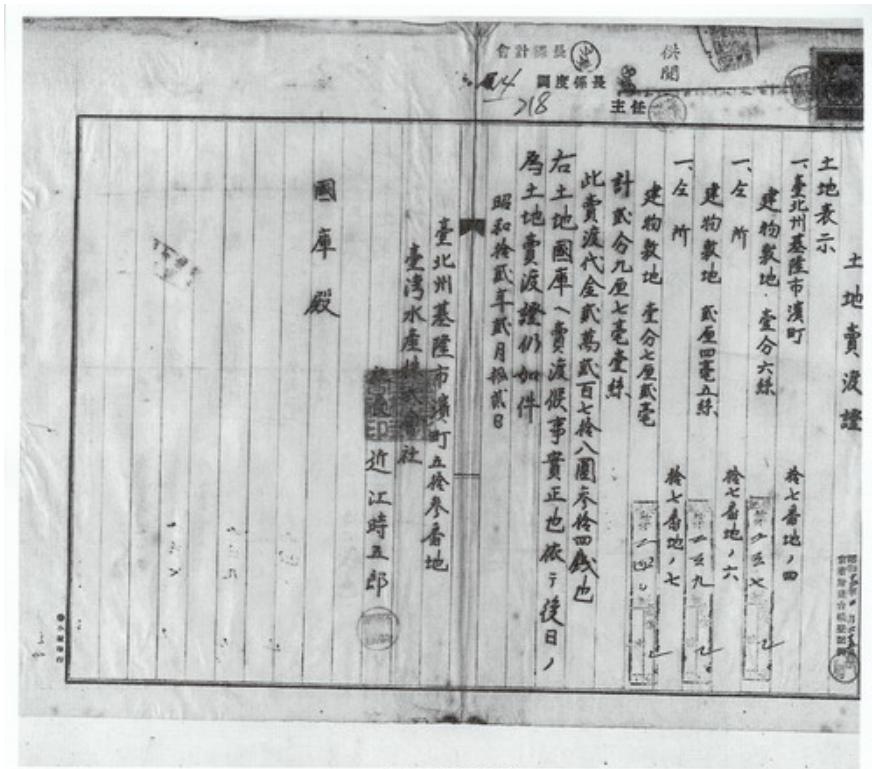 供閲
會計係長
調度係長
主任
218
土地賣渡證
土地表示
一、臺北州基隆市濱町 拾七番地ノ四
建物敷地 壹分六絲
一、仝所 拾七番地ノ六
建物敷地 貳厘四毫五絲
一、仝所 拾七番地ノ七
建物敷地 壹分七厘貳毫
計貳分九厘七毫壹絲
此賣渡代金貳萬貳百七拾八圓参拾四錢也
右土地國庫ヘ賣渡候事實正也依テ後日ノ
為土地賣渡證仍如件
昭和拾貳年貳月拾貳日
臺北州基隆市濱町五拾参番地
臺灣水産株式會社
近江時五郎
國庫殿